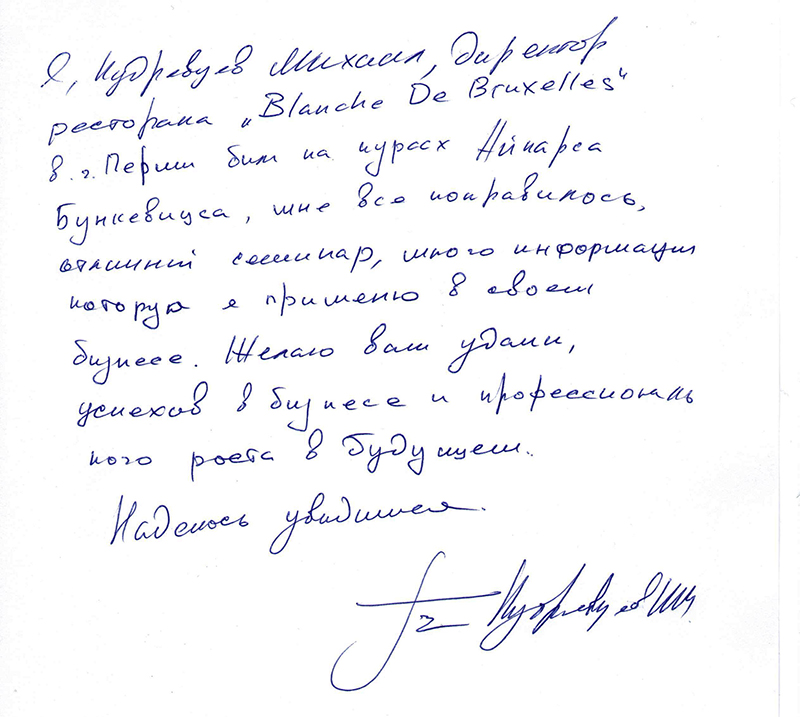 Я, Кудрявцев Михаил, директор
ресторана „Blanche De Bruxelles“
в г. Перми был на курсах Айнарса
Бункевицса, мне все понравилось,
отличный семинар, много информации
которую я применю в своем
бизнесе. Желаю вам удачи,
успехов в бизнесе и профессиональ
ного роста в будущем.
Надеюсь увидимся.
Кудрявцев